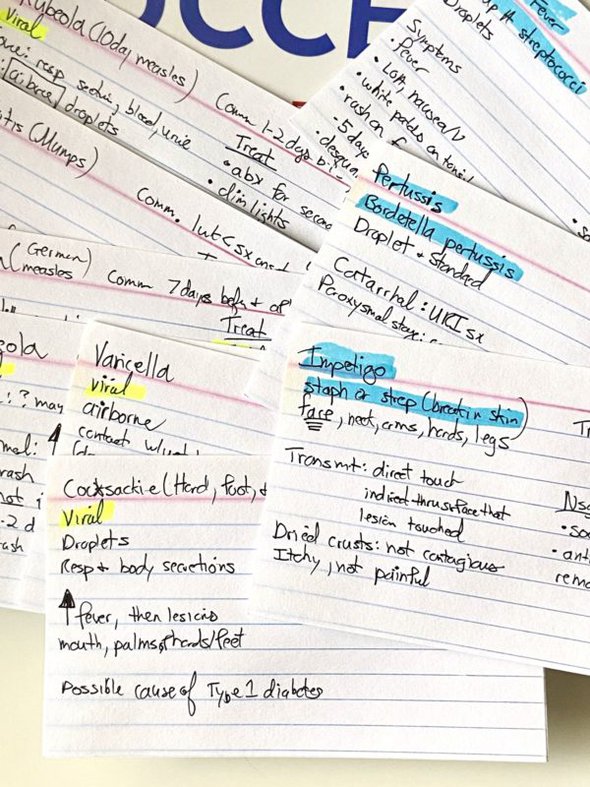 OCCE
Rubeola (10day measles)
Viral
Comm 1-2 days b
resp secretn, blood, urine
airborne droplets
Treat
• abx for secon
• dim lights
Fever
streptococci
Droplets
Symptoms
• fever
• LOA, nausea/V
• white patches on tonsil
• rash on
-5 days
• desqua
itis (Mumps)
Comm.
Pertussis
Bordetella pertussis
Droplet + Standard
Catarrhal: URI sx
Paroxysmal stage:
(German measles)
Comm 7 days befo +
Treat
eola
: ? may
mal:
rash
not
-2 d
rash
Varicella
Viral
airborne
contact w/
Impetigo
staph or strep (break in skin)
face, neck, arms, hands, legs
Transmt: direct touch
indirect thru surface that
lesion touched
Dried crusts: not contagious
Itchy, not painful
Nsg
• soa
• anti
remo
Coxsackie (Hand, foot, +
Viral
Droplets
Resp + body secretions
↑ fever, then lesions
mouth, palms of hands/feet
Possible cause of Type 1 diabetes